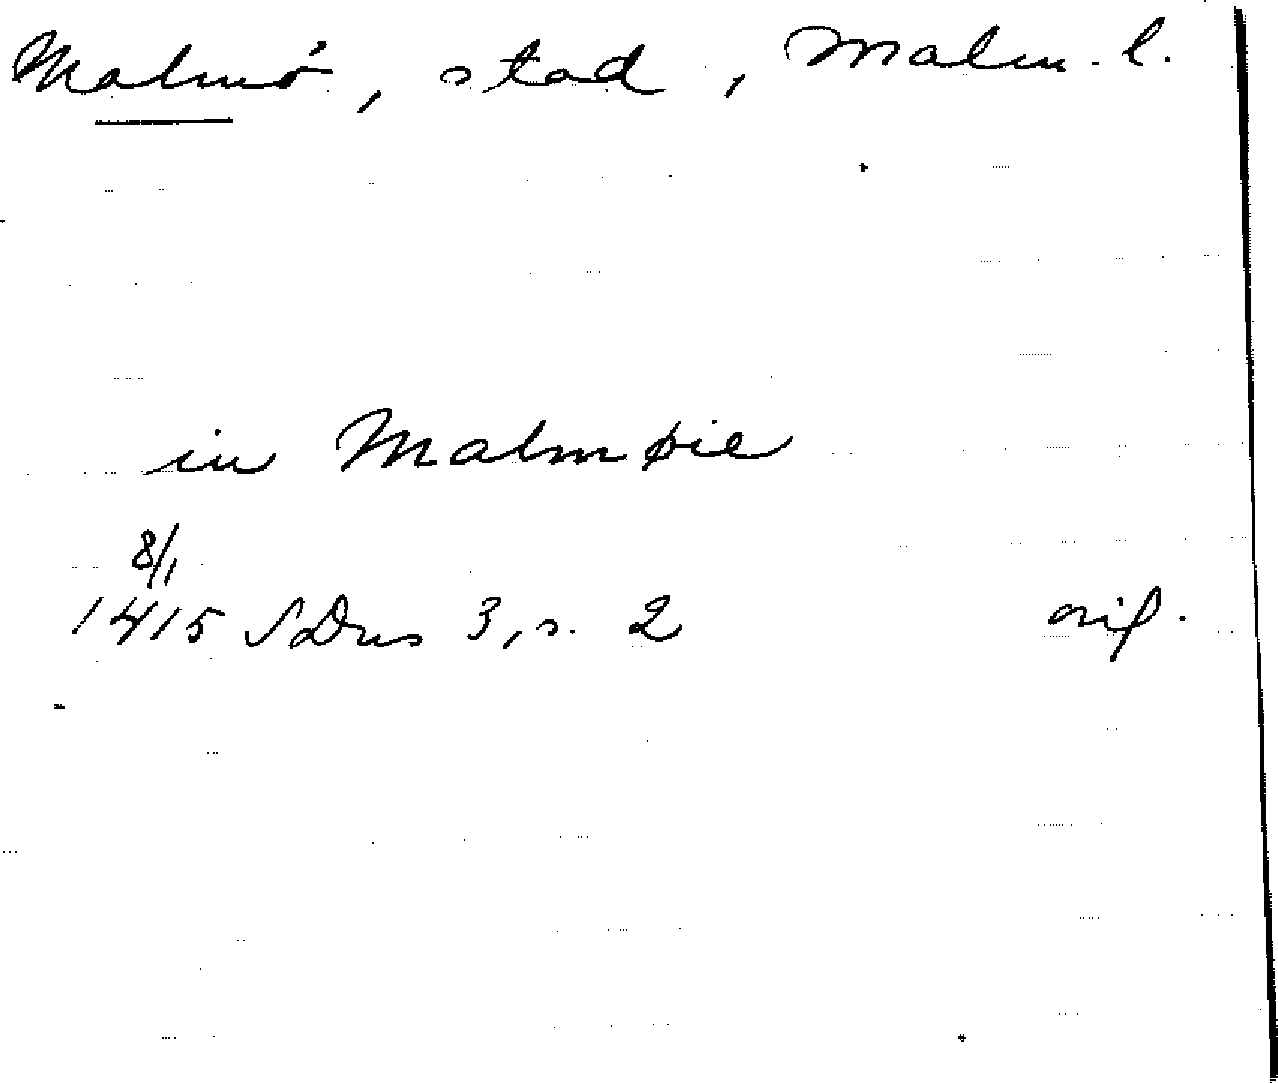 Malmö, stad, Malm. l.
in Malmøie
8/1
1415 SDns 3, s. 2 orig.